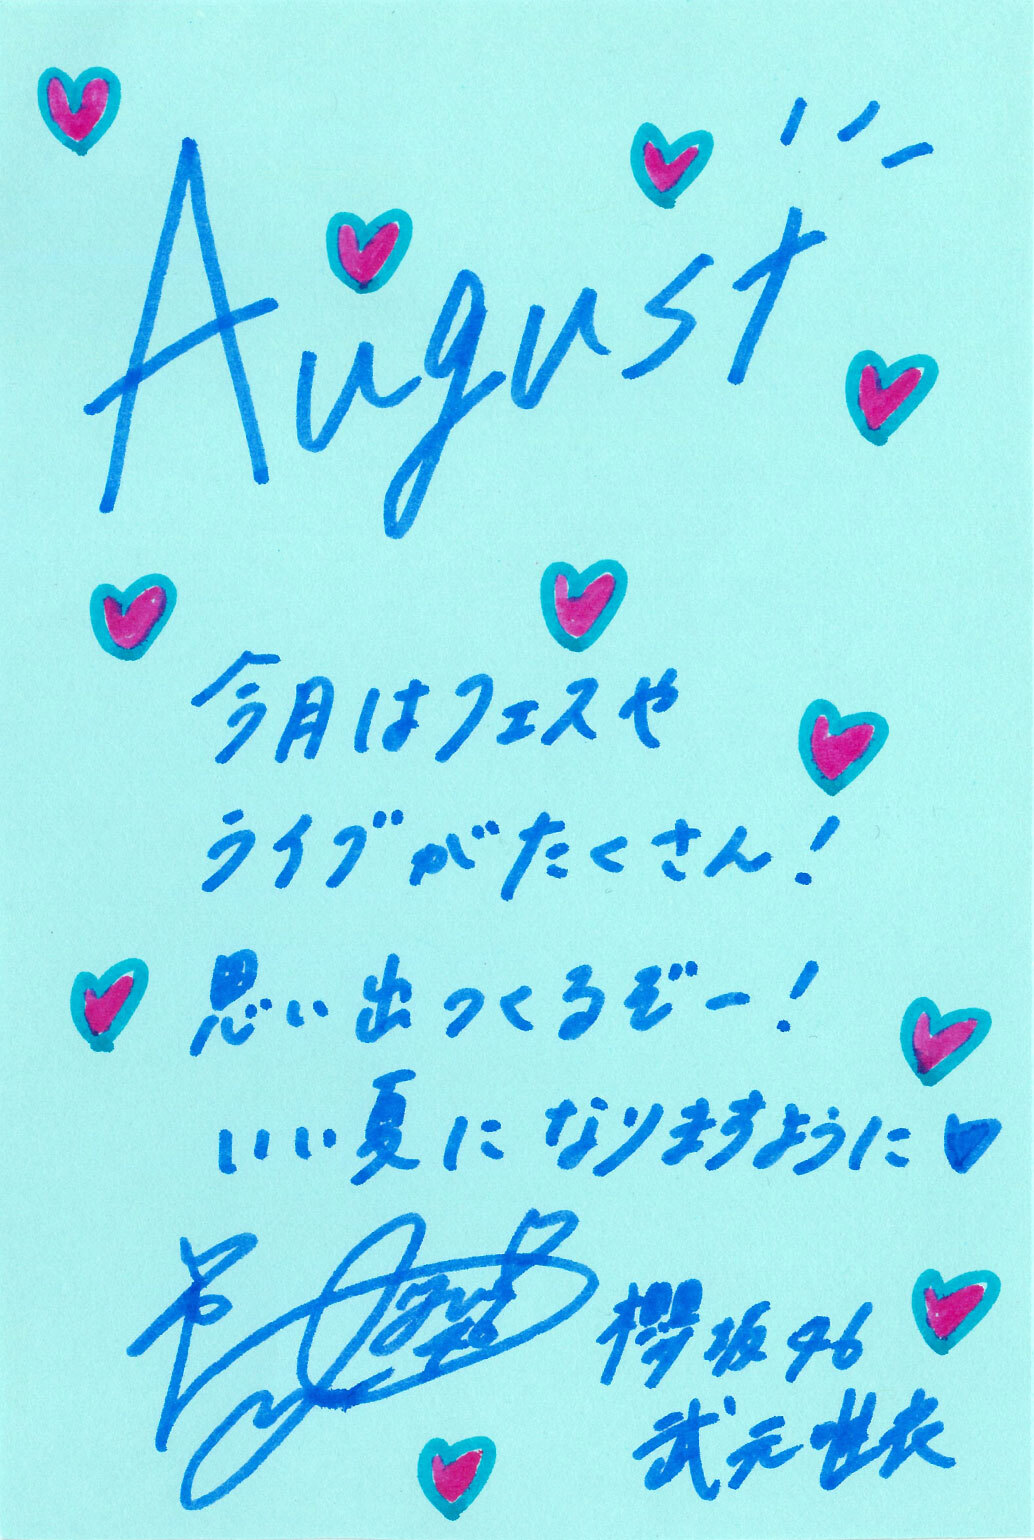 August
今月はフェスや
ライブがたくさん!
思い出つくるぞー!
いい夏になりますように
櫻坂46
武元唯衣